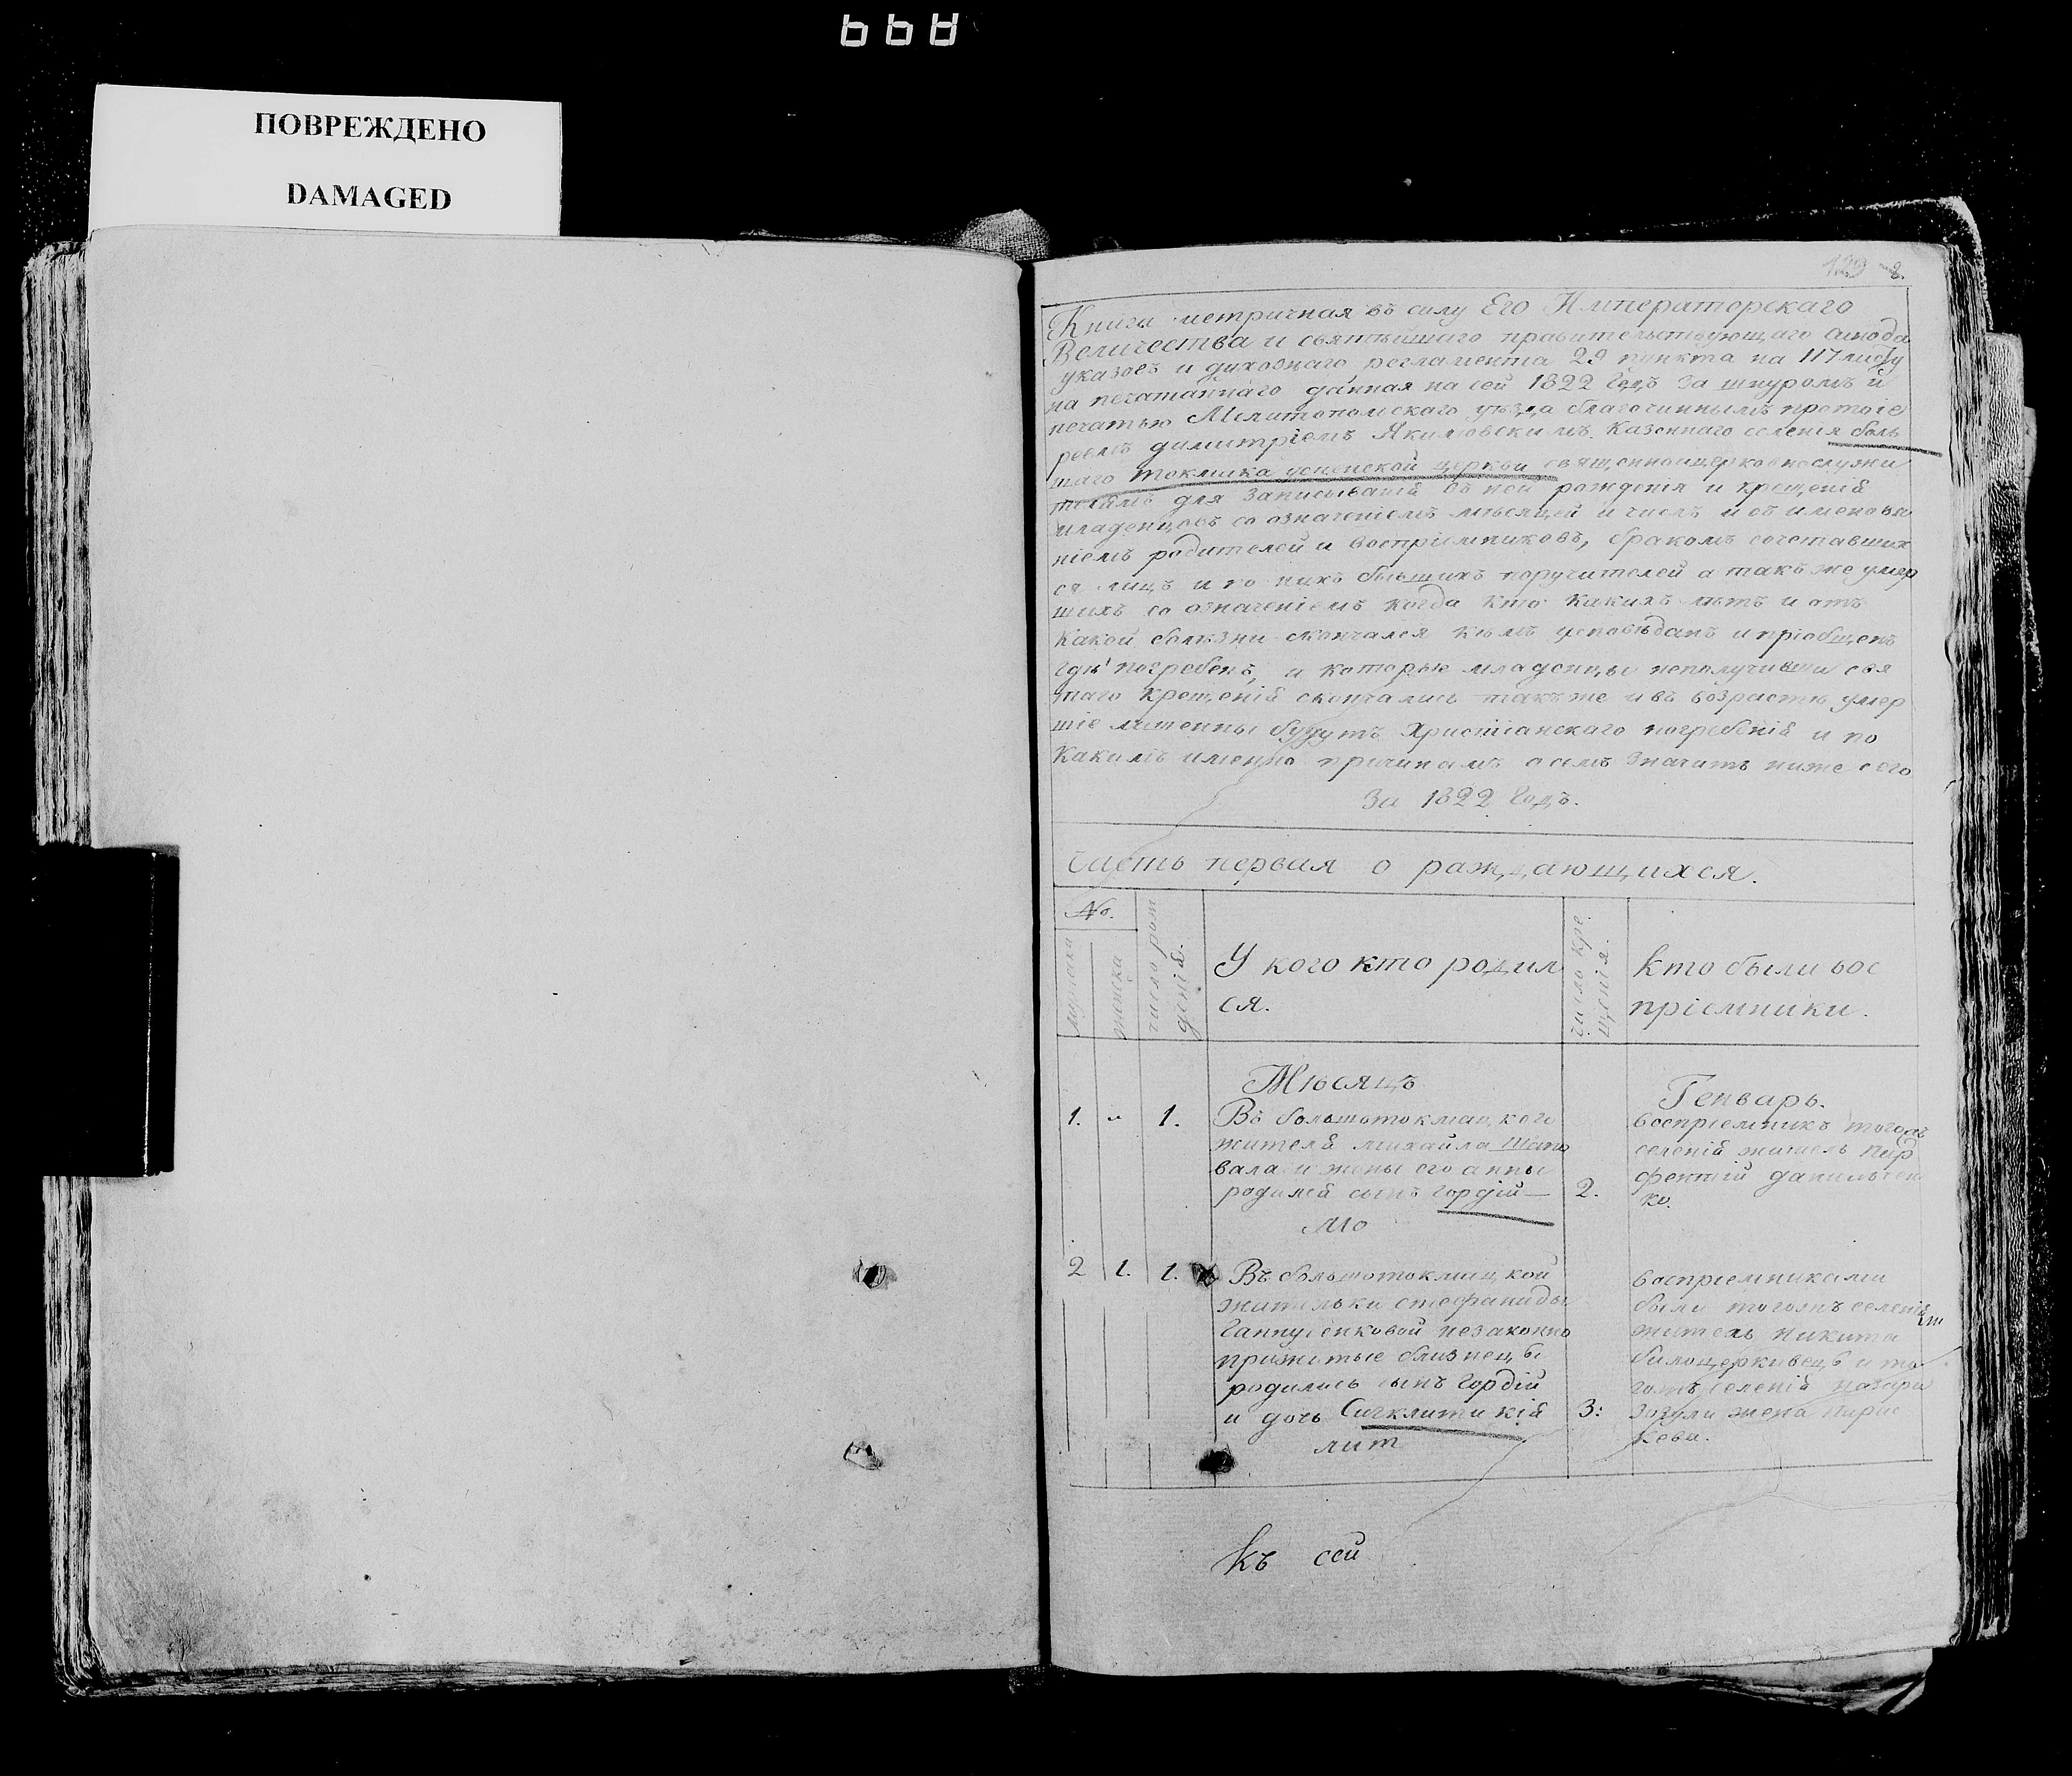 ПОВРЕЖДЕНО
DAMAGED
129
Книга метричная въ силу Его Императорскаго
Величества и святѣйшаго правительствующаго синода
указовъ и духовнаго регламента 29 пункта на 117 листу
на печатаннаго данная на сей 1822 годъ за шнуромъ и
печатью Мелитопольскаго уѣзда благочиннымъ протоіе
реемъ димитріемъ Якимовскимъ. Казеннаго селенія боль
шаго токмака успенской церкви священноицерковнослужи
телямъ для записыванія въ ней рожденія и крещенія
младенцовъ со означеніемъ мѣсяцей и числъ и съ именова
ніемъ родителей и воспріемниковъ, бракомъ сочетавших
ся лицъ и по нихъ бывшихъ поручителей а такъ же умер
шихъ со означеніемъ когда кто какихъ лѣтъ и отъ
какой болѣзни скончался кѣмъ исповѣданъ и пріобщенъ
гдѣ погребенъ, и которые младенцы неполучивши свя
таго крещенія скончались такъже ивъ возрастѣ умер
шіе лишенны будутъ Христіанскаго погребенія и по
какимъ именно причинамъ о семъ значитъ ниже сего
За 1822 Годъ.
часть первая о раждающихся.
No.
мужеска
женска
число рож
денія.
У кого кто родил
ся.
число кре
щенія.
кто были вос
пріемники.
Мѣсяцъ
Генварь.
1. " 1. Въ большотокмацкого
жителя михайла Шапо
вала и жены его анны
родился сынъ гордій 2.
воспріемникъ тогожъ
селенія житель пар
фентій данильчен
ко.
2 1. 1. Въ большотокмацкой
жительки стефаниды
Ганнусенковой незаконно
прижитые близнецы
родились сынъ гордій
и дочь Сигклитикія 3:
воспріемниками
были тогожъ селенія
житель никита
билоцеркивецъ и то
гожъ селенія назара
зозули жена парас
кева.
къ сей